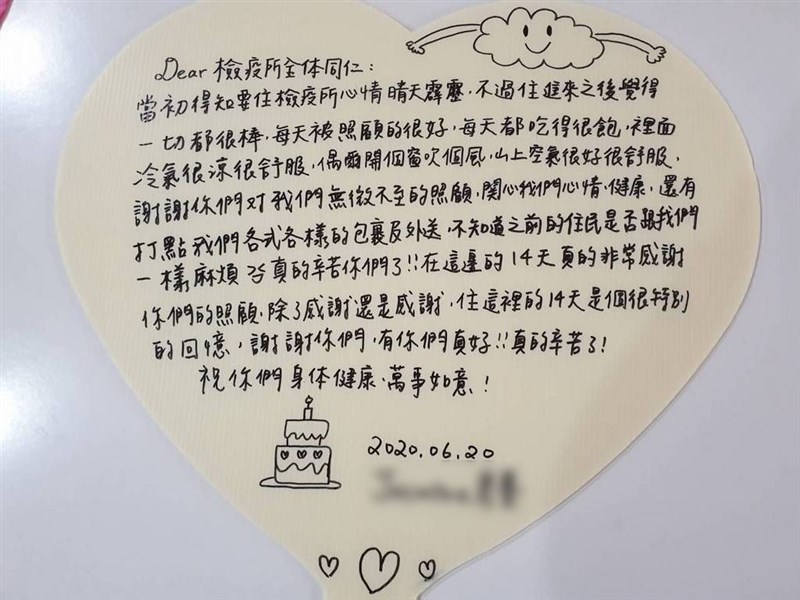 Dear 檢疫所全体同仁：
當初得知要住檢疫所心情晴天霹靂，不過住進來之後覺得
一切都很棒，每天被照顧的很好，每天都吃得很飽，裡面
冷氣很涼很舒服，偶爾開個窗吹個風，山上空氣很好很舒服，
謝謝你們對我們無微不至的照顧，関心我們心情、健康，還有
打點我們各式各樣的包裹及外送，不知道之前的住民是否跟我們
一樣麻煩 真的辛苦你們了!!在這邊的14天真的非常感謝
你們的照顧，除了感謝還是感謝，住這裡的14天是個很特別
的回憶，謝謝你們，有你們真好!!真的辛苦了!
祝你們身体健康、萬事如意!
2020.06.20